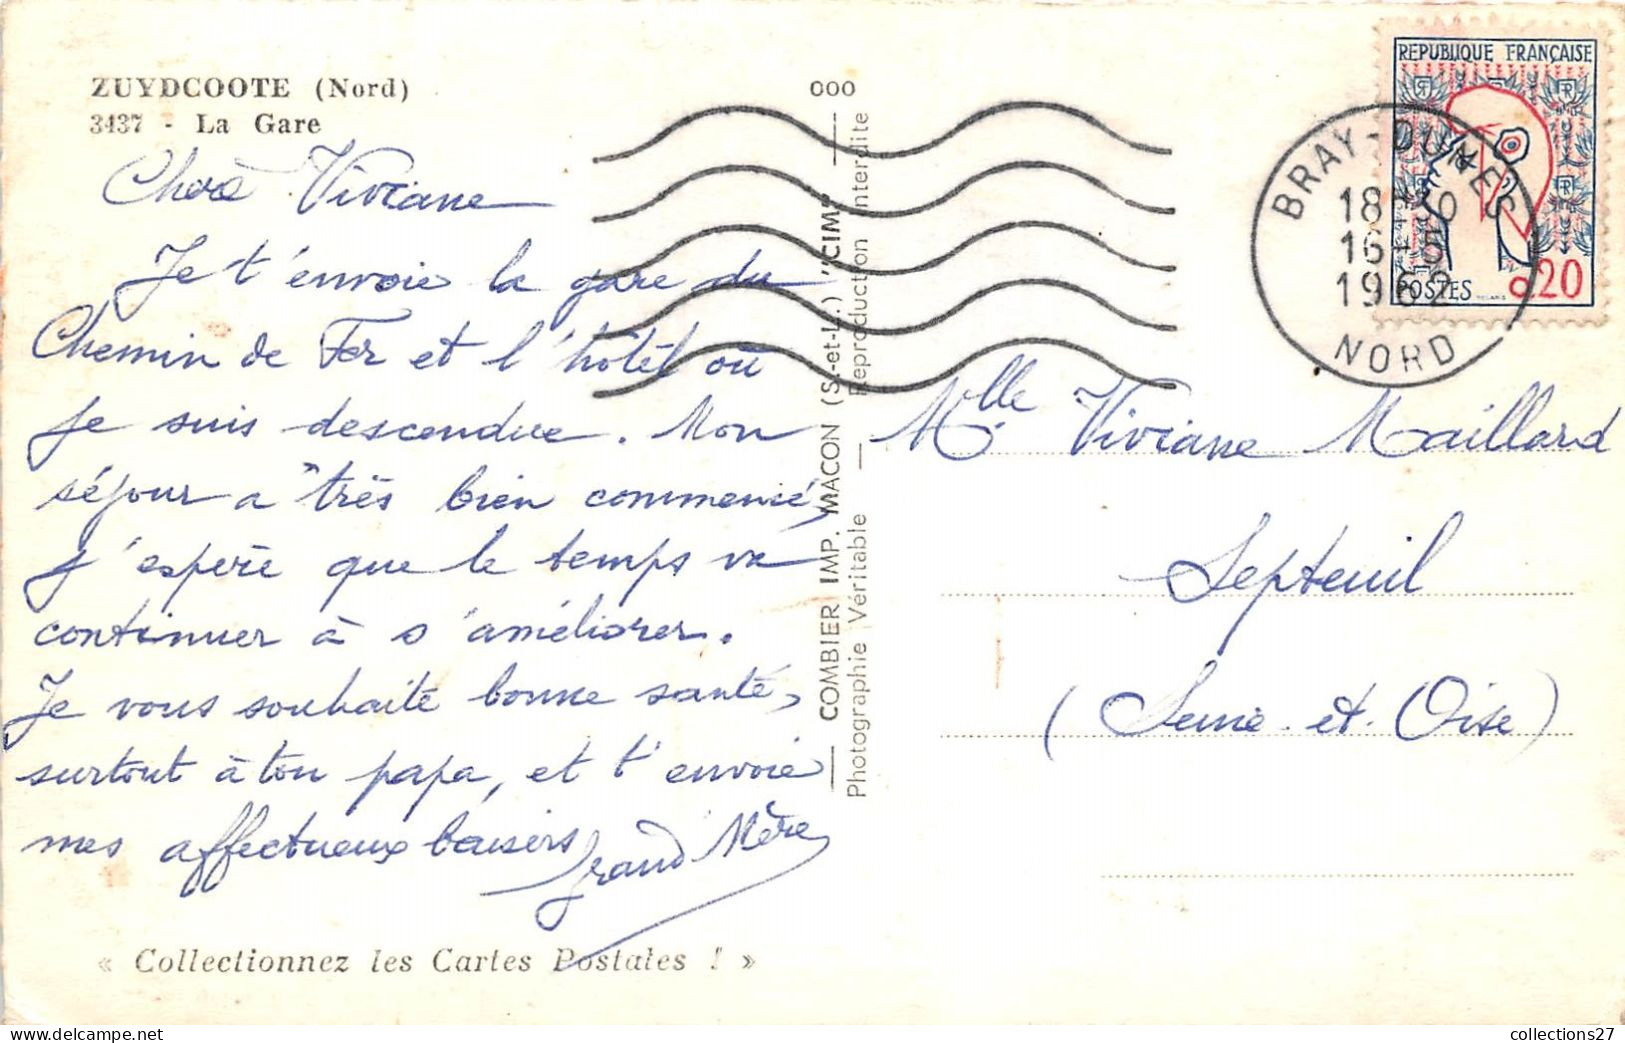 ZUYDCOOTE (Nord)
3437 - La Gare
Chère Viviane
Je t'envoie la gare du
Chemin de Fer et l'hôtel où
je suis descendue. Mon
séjour a très bien commencé,
j'espère que le temps va
continuer à s'améliorer.
Je vous souhaite bonne santé,
surtout à ton papa, et t'envoie
mes affectueux baisers
Grand'Mère
« Collectionnez les Cartes Postales ! »
000
COMBIER IMP. MACON (S.-et-L.) "CIM"
Photographie Véritable — Reproduction Interdite
REPUBLIQUE FRANÇAISE
POSTES
0,20
BRAY-DUNES
18H30
16-5
1962
NORD
Mlle Viviane Maillard
Septeuil
(Seine-et-Oise)
collections27